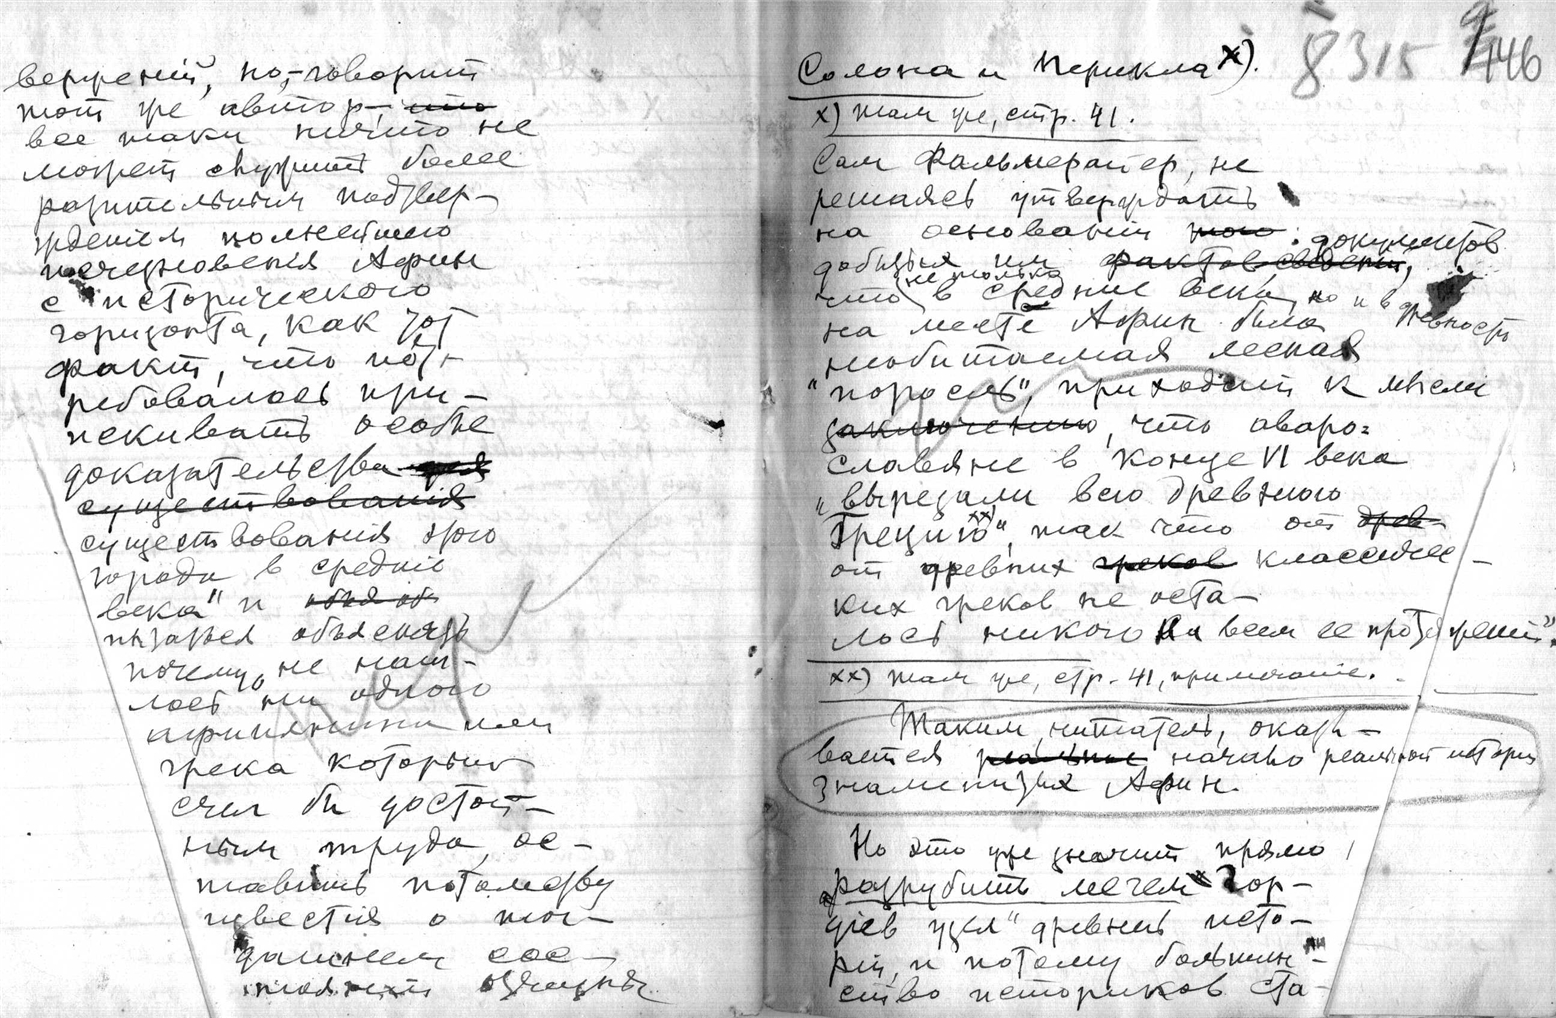 вержений, но, – говорит
тот же автор, – что
все таки ничто не
может служить более
разительным подтвер-
ждением полнейшего
исчезновения Афин
с исторического
горизонта, как тот
факт, что пот-
ребовалось при-
искивать особые
доказательства для
существования
существования этого
города в средние
века" и объя об
пытаться объяснить
почему не наш-
лось ни одного
афинянина или
грека который
счел бы достой-
ным труда, ос-
тавить потомству
известия о тог-
дашнем сос-
тоянии отчизны
8315 446
Солона и Перикла х).
х) Там же, стр. 41.
Сам Фальмерайер, не
решаясь утверждать
на основании того документов
добытых им фактов сведений,
что не только в средние века, но и в древность
на месте Афин была
необитаемая лесная
"поросль", приходит к мысли
заключению, что аваро-
славяне в конце VI века
"вырезали всю древнюю
Грецию хх)", так что от древ-
от древних греков классичес-
ких греков не оста-
лось никого на всем ее протяжении".
хх) Там же, стр. 41, примечание.
Таким, читатель, оказы-
вается реальное начало реальной истории
знаменитых Афин.
Но это уже значит прямо
"разрубить мечем Гор-
диев узел" древней исто-
рии, и потому большин-
ство историков ста-